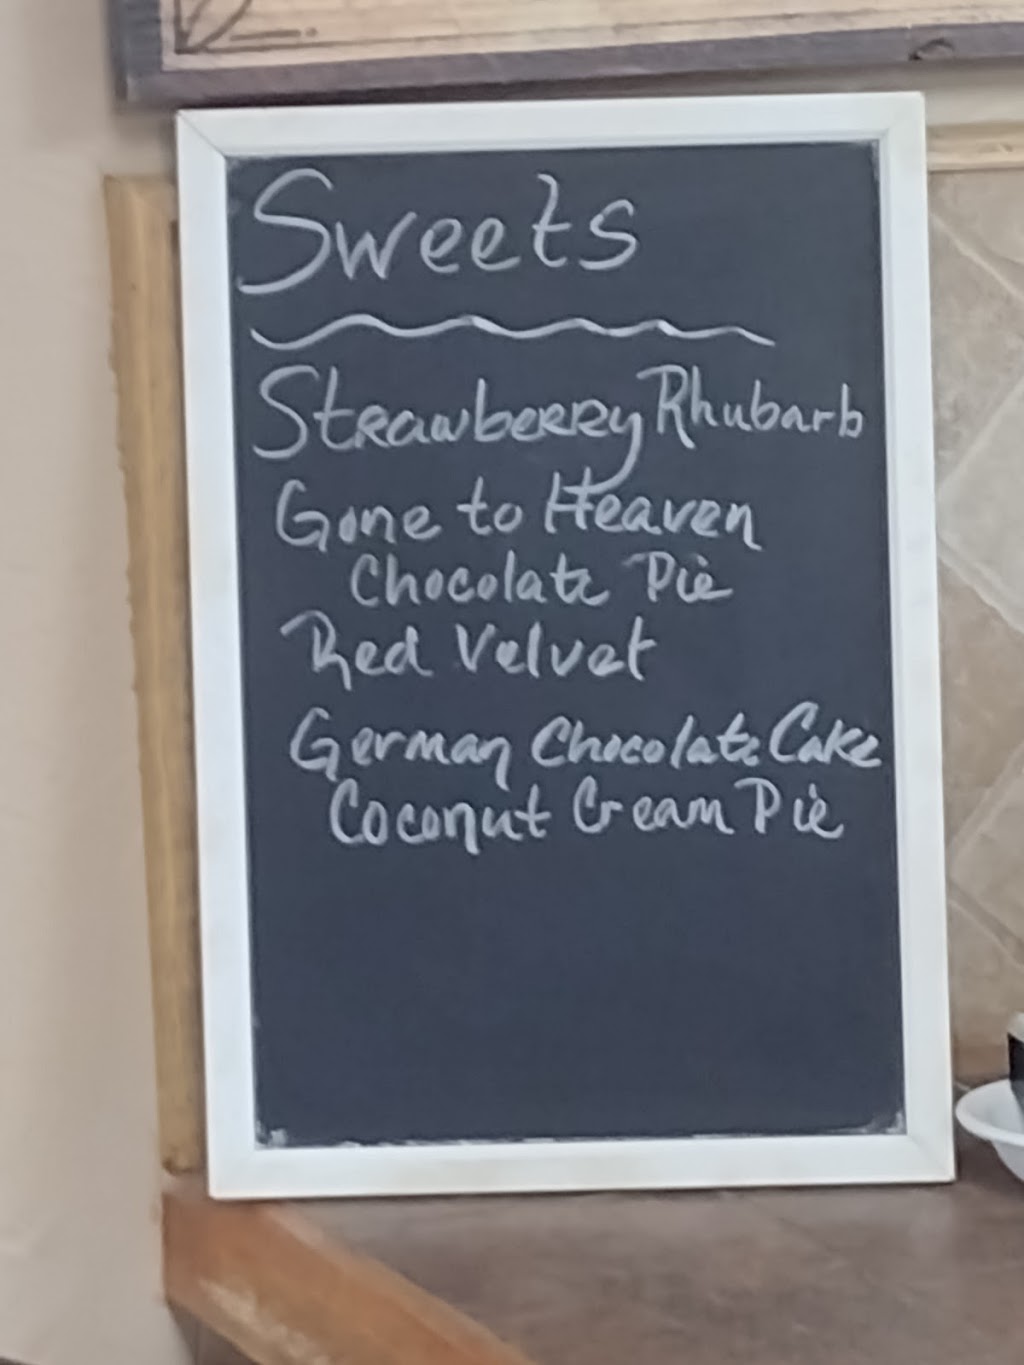 Sweets
Strawberry Rhubarb
Gone to Heaven
Chocolate Pie
Red Velvet
German Chocolate Cake
Coconut Cream Pie